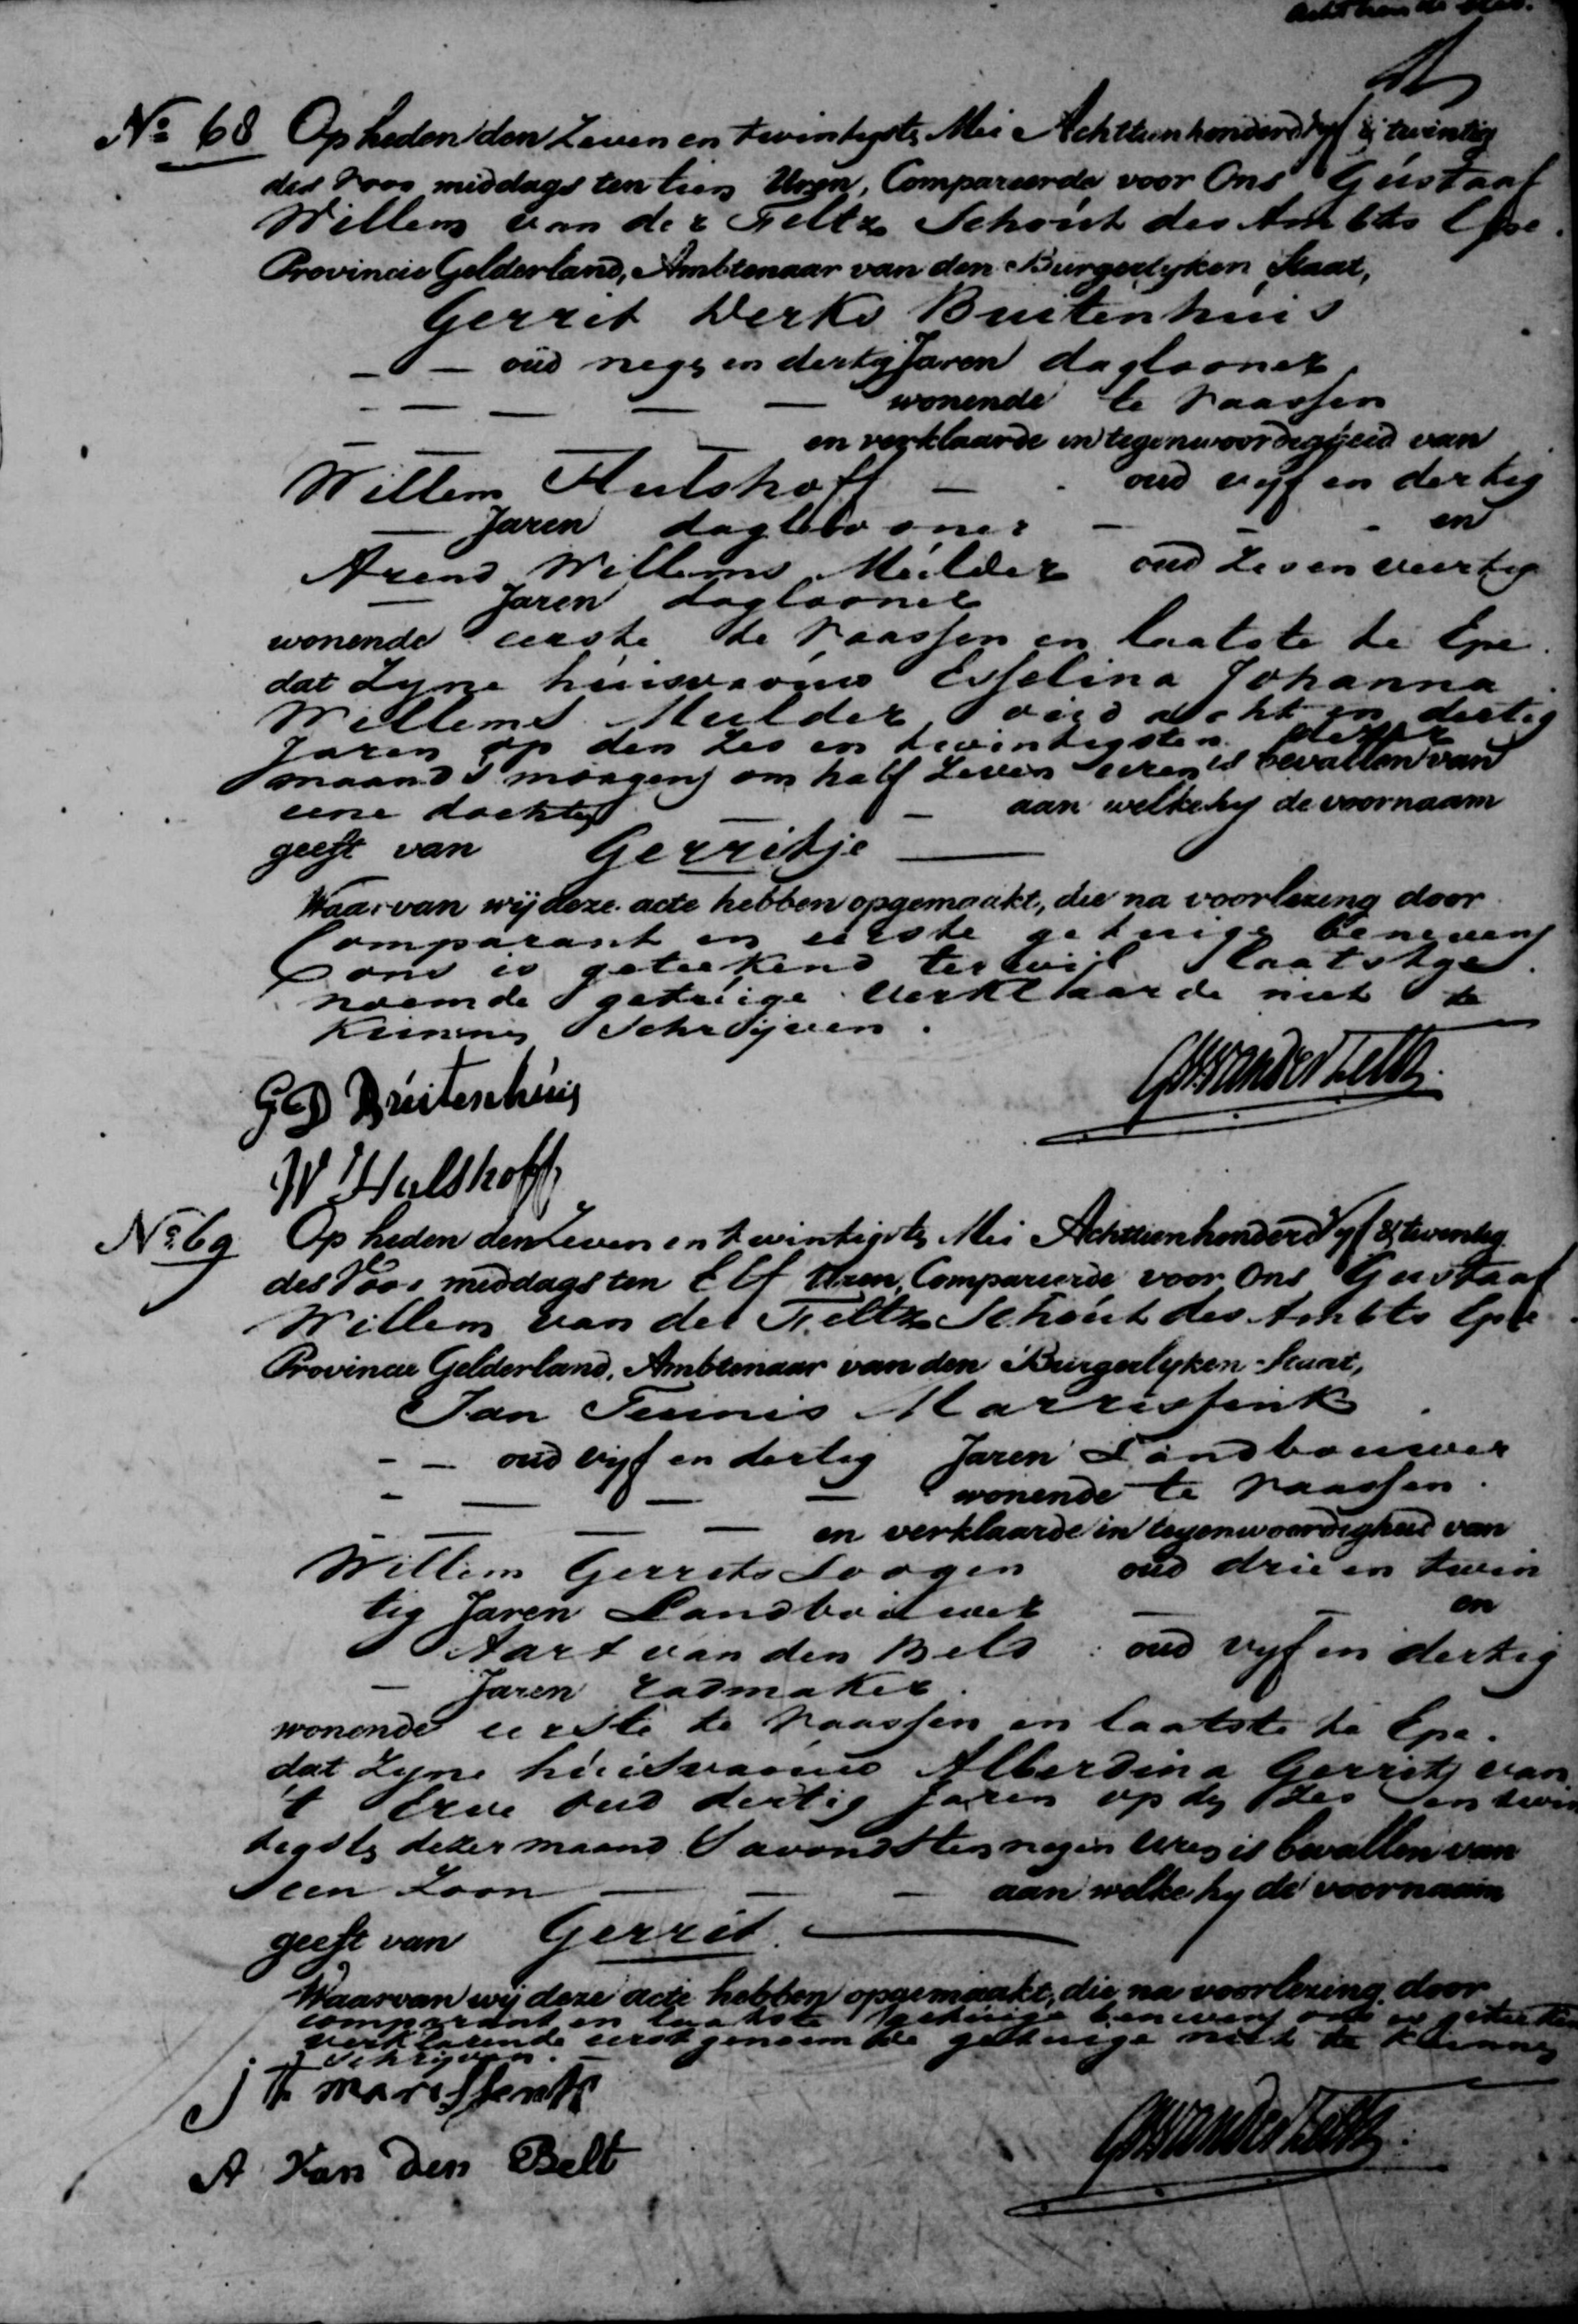 No 68 Op heden den Zeven en twintigste Mei Achttien honderd vyf & twintig
des voor middags ten tien Uren, Compareerde voor Ons Gustaaf
Willem van der Feltz Schout des Ambts Epe
Provincie Gelderland, Ambtenaar van den Burgerlyken Staat,
Gerrit Derks Buitenhuis
- - oud negen en dertig Jaren daglooner
- - - - - wonende te Vaassen
- - - en verklaarde in tegenwoordigheid van
Willem Hulshoff - - oud vyf en dertig
- Jaren daglooner - - - en
Arend Willems Mulder oud Zes en veertig
- Jaren daglooner
wonende eerste te Vaassen en laatste te Epe.
dat Zyne huisvrouw Esselina Johanna
Willems Mulder oud acht en dertig
Jaren op den Zes en twintigsten dezer
maand smorgens om half Zeven uren is bevallen van
eene dochter - - aan welke hy de voornaam
geeft van Gerritje —
Waarvan wij deze acte hebben opgemaakt, die na voorlezing door
Comparant en eerste getuige benevens
ons is geteekend terwijl laatstge
noemde getuige verklaarde niet te
kunnen Schrijven.
GD Buitenhuis GWvanderFeltz
W Hulshoff
No 69 Op heden den Zeven en twintigste Mei Achttien honderd Vyf & twintig
des Voor middags ten Elf Uren, Compareerde voor Ons Gustaaf
Willem van der Feltz Schout des Ambts Epe
Provincie Gelderland, Ambtenaar van den Burgerlyken Staat,
Jan Teunis Marrissink
- - oud vyf en dertig Jaren Landbouwer
- - - - wonende te Vaassen.
- - - - en verklaarde in tegenwoordigheid van
Willem Gerrits Loogen oud drie en twin
tig Jaren Landbouwer - - en
Aart van den Belt oud vyf en dertig
- Jaren radmaker.
wonende eerste te Vaassen en laatste te Epe.
dat Zyne huisvrouw Alberdina Gerrits van
't Erve oud dertig Jaren op den Zes en twin
tigste dezer maand S avonds ten negen uren is bevallen van
een Zoon - - - aan welke hy de voornaam
geeft van Gerrit. —
Waarvan wij deze acte hebben opgemaakt, die na voorlezing door
comparant en laatste getuige benevens ons is geteekend
verklarende eerstgenoemde getuige niet te kunnen
Schrijven. -
J T Marissink GWvanderFeltz
A Van den Belt